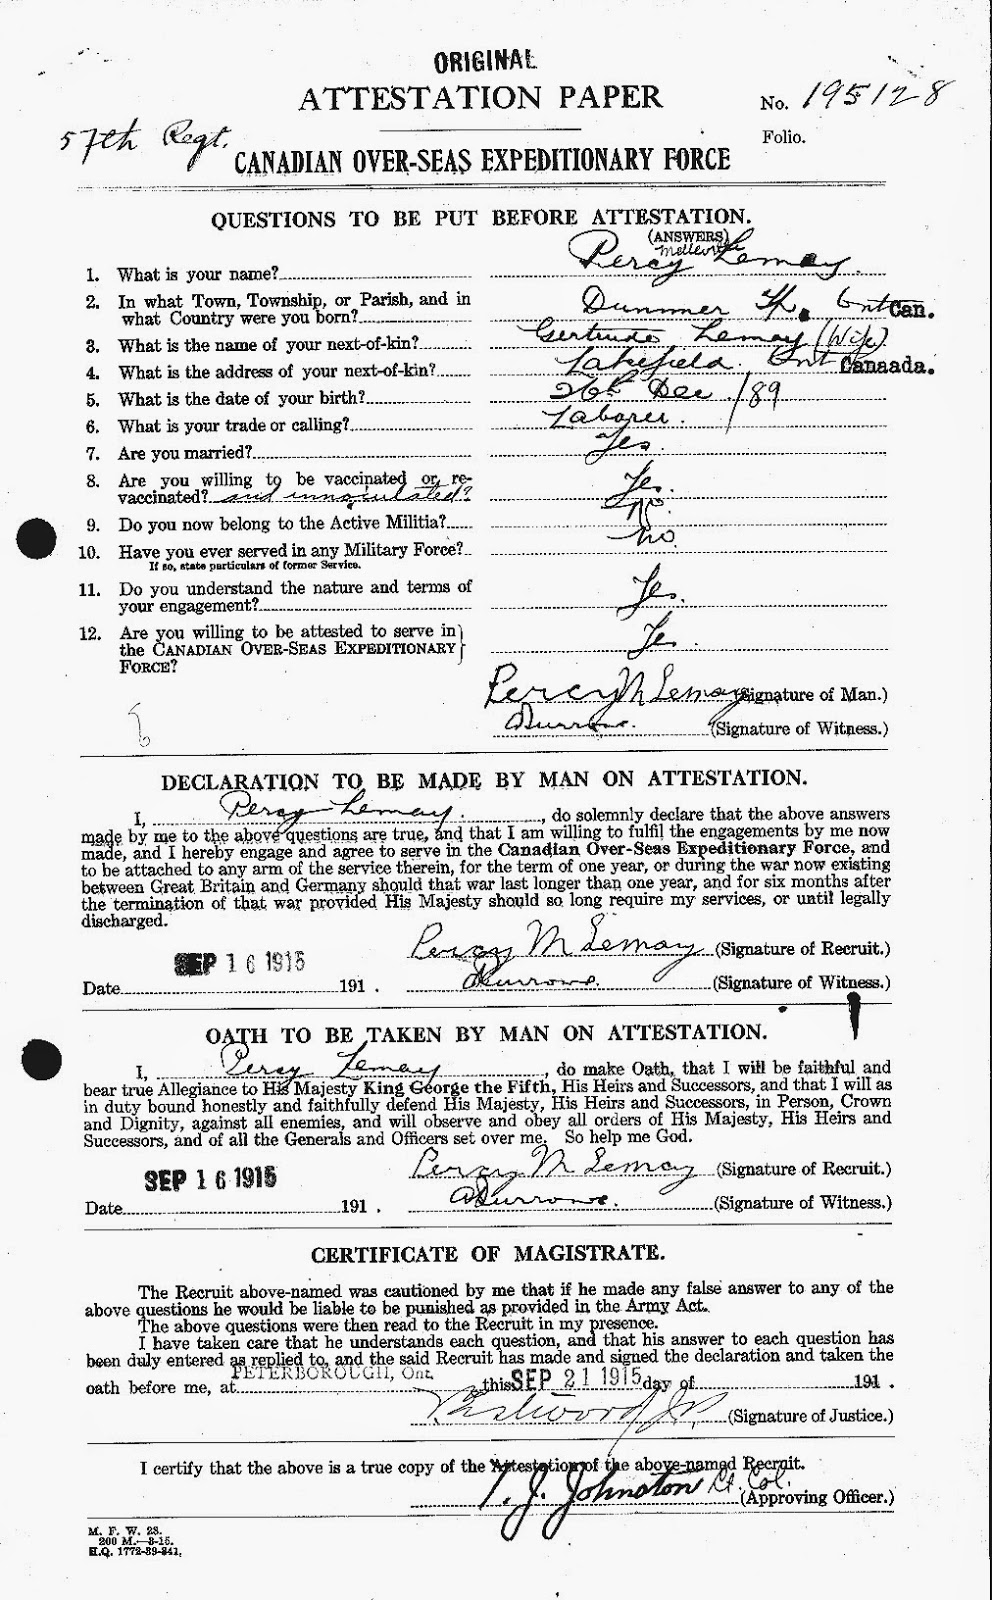 ORIGINAL
ATTESTATION PAPER
No. 195128
Folio.
57th Regt.
CANADIAN OVER-SEAS EXPEDITIONARY FORCE
QUESTIONS TO BE PUT BEFORE ATTESTATION.
(ANSWERS)
1. What is your name? Percy Lemay
2. In what Town, Township, or Parish, and in
what Country were you born? Dummer Ont Can.
3. What is the name of your next-of-kin? Gertrude Lemay (Wife)
4. What is the address of your next-of-kin? Lakefield Ont Canaada.
5. What is the date of your birth? 26th Dec /89
6. What is your trade or calling? Laborer.
7. Are you married? Yes.
8. Are you willing to be vaccinated or re-
vaccinated? and innoculated? Yes.
9. Do you now belong to the Active Militia? No
10. Have you ever served in any Military Force? No.
If so, state particulars of former Service.
11. Do you understand the nature and terms of
your engagement? Yes.
12. Are you willing to be attested to serve in
the CANADIAN OVER-SEAS EXPEDITIONARY Yes.
FORCE?
Percy M Lemay (Signature of Man.)
ABurrows. (Signature of Witness.)
DECLARATION TO BE MADE BY MAN ON ATTESTATION.
I, Percy Lemay., do solemnly declare that the above answers
made by me to the above questions are true, and that I am willing to fulfil the engagements by me now
made, and I hereby engage and agree to serve in the Canadian Over-Seas Expeditionary Force, and
to be attached to any arm of the service therein, for the term of one year, or during the war now existing
between Great Britain and Germany should that war last longer than one year, and for six months after
the termination of that war provided His Majesty should so long require my services, or until legally
discharged.
Percy M Lemay (Signature of Recruit.)
SEP 16 1915
Date 191 . ABurrows. (Signature of Witness.)
OATH TO BE TAKEN BY MAN ON ATTESTATION.
I, Percy Lemay, do make Oath, that I will be faithful and
bear true Allegiance to His Majesty King George the Fifth, His Heirs and Successors, and that I will as
in duty bound honestly and faithfully defend His Majesty, His Heirs and Successors, in Person, Crown
and Dignity, against all enemies, and will observe and obey all orders of His Majesty, His Heirs and
Successors, and of all the Generals and Officers set over me. So help me God.
Percy M Lemay (Signature of Recruit.)
SEP 16 1915
Date 191 . ABurrows. (Signature of Witness.)
CERTIFICATE OF MAGISTRATE.
The Recruit above-named was cautioned by me that if he made any false answer to any of the
above questions he would be liable to be punished as provided in the Army Act.
The above questions were then read to the Recruit in my presence.
I have taken care that he understands each question, and that his answer to each question has
been duly entered as replied to, and the said Recruit has made and signed the declaration and taken the
oath before me, at PETERBOROUGH, Ont. this SEP 21 1915 day of 191 .
(Signature of Justice.)
I certify that the above is a true copy of the Attestation of the above-named Recruit.
Johnston Lt. Col. (Approving Officer.)
M. F. W. 23.
200 M.—8-15.
H.Q. 1772-39-841.